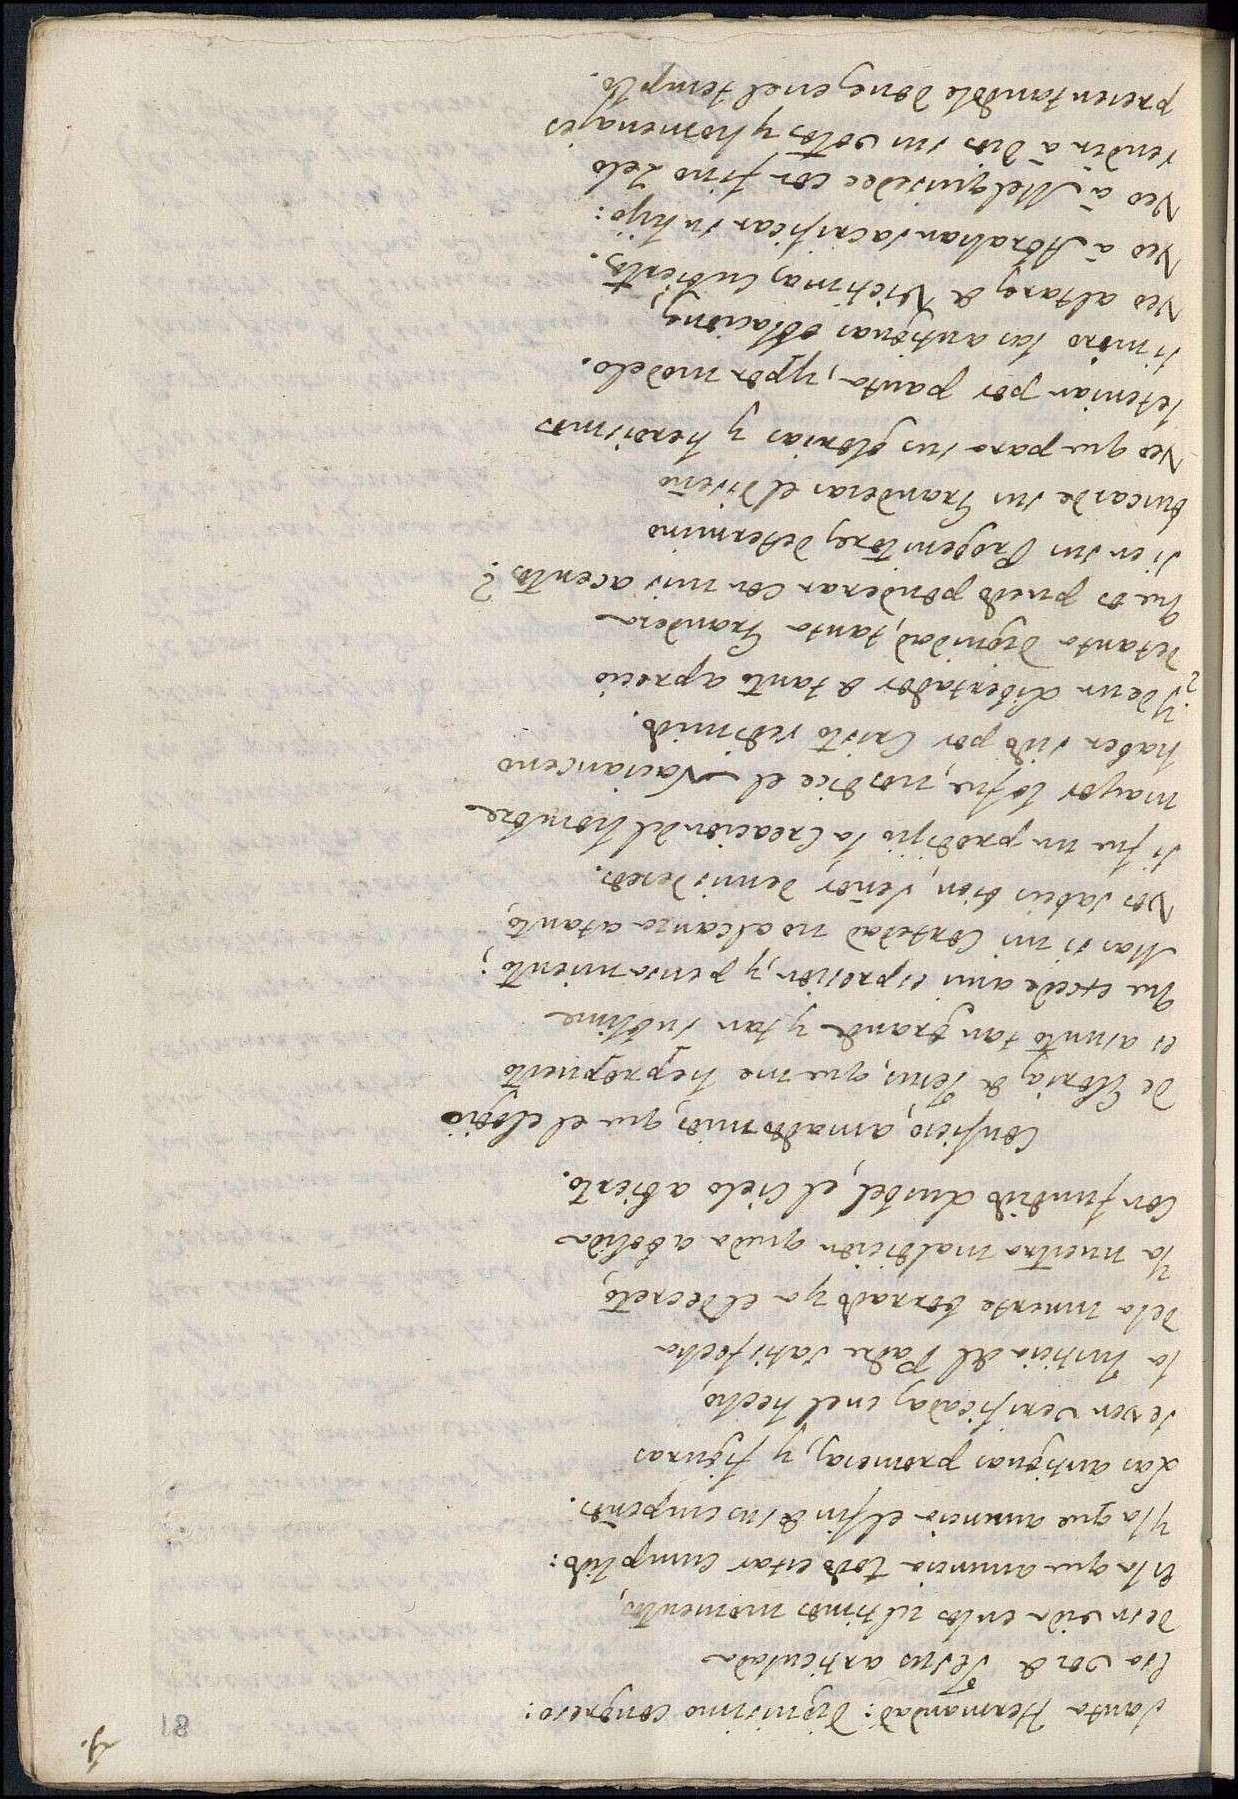 18
Santa Hermandad: Dignisimo congreso:
Esa voz de Jesus articulada
de su vida en los ultimos momentos,
Es la que anuncia todo estar cumplido:
Y la que anuncia el fin de sus empeños.
Las antiguas promesas, y figuras
se ven verificadas en el hecho,
la Justicia del Padre satisfecha
de la muerte borrado ya el Decreto,
Ya nuestra maldicion queda abolida
Confundido Lusbel, el Cielo abierto.
Confieso, amados mios, que el elogio
De Glorias de Jesus, que me he propuesto
es asunto tan grande y tan sublime
Que excede a mi expresion, y pensamiento;
Mas si mi Cortedad no alcanza a tanto,
Vos sabeis bien, Señor, de mis deseos.
Si fue un prodijio la Creacion del hombre
mayor lo fue, nos dice el Nacianceno
haber sido por Cristo redimido.
Y de un Libertador de tanto aprecio
de tanta Dignidad, tanta Grandeza
Que os puedo ponderar con mis acentos?
Si en sus Progenitores determino
buscar de sus Grandezas el Diseño
Veo que para sus glorias y heroismos
se tenian por pauta, y por modelo.
Si miro las antiguas oblaciones,
Veo altares de Victimas Cubiertos.
Veo á Abrahan sacrificar su hijo:
Veo á Melquisedec con fino zelo
rendir á Dios sus votos y homenajes
presentandole dones en el templo.